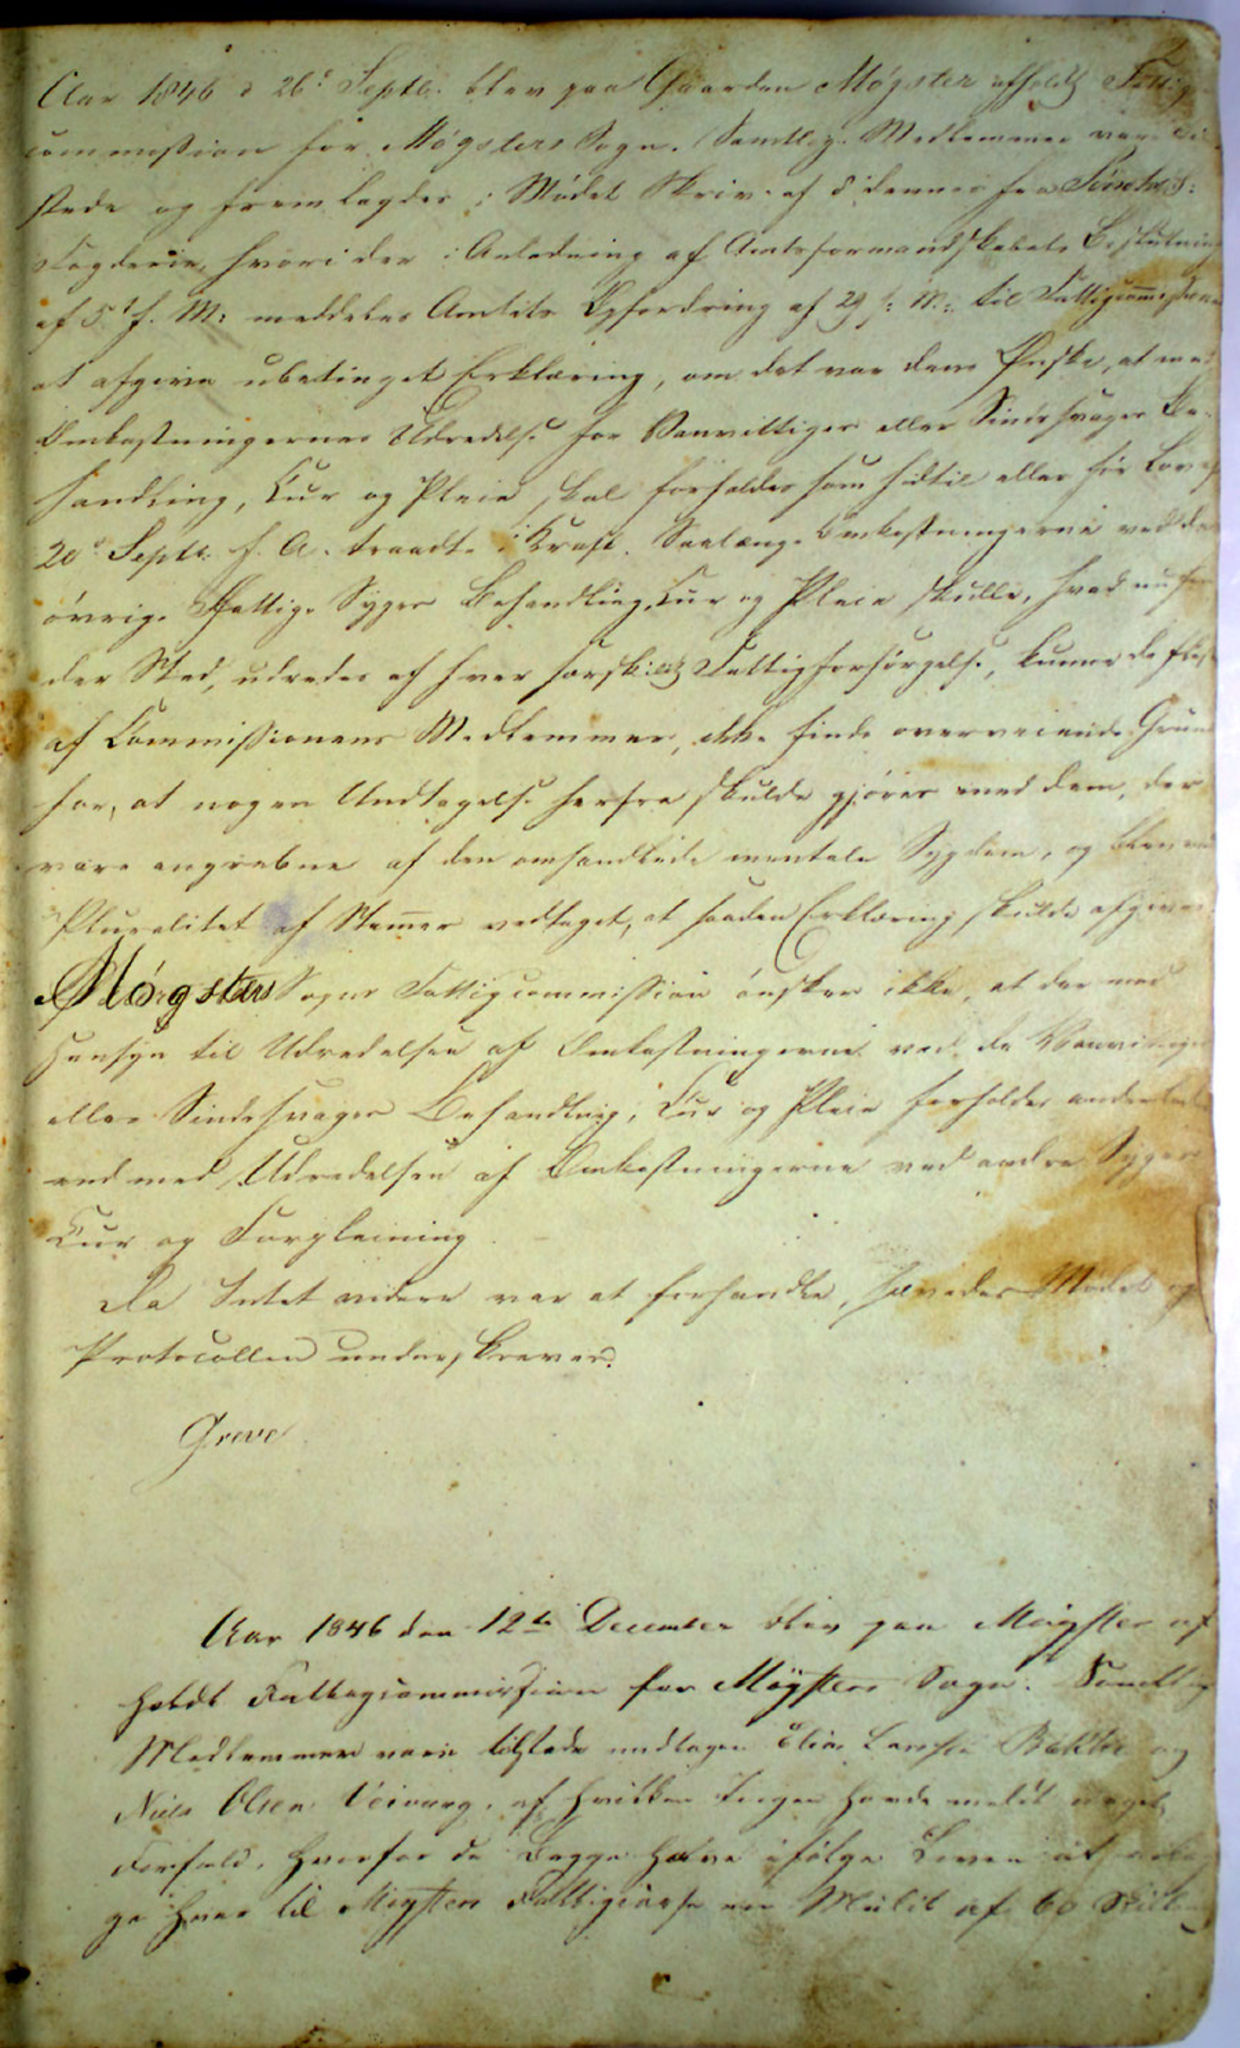 Aar 1846 d 26d Septb. blev paa Gaarden Møgster afholdt Fattig
commission for Møgsters Sogn. Samtlige Medlemmer vare til
stede og fremlagdes i Mødet Skriv. af 8 dennes fra Søndh:
Fogderie, hvori der i Anledning af Amtsformandskabets Beslutning
af 5t f. M: meddeles Amtets Opfordring af 29 f: M: til Fattigcommissionen
at afgive ubetinget Erklæring, om det var dens Ønske, at med
Omkostningernes Udredelse for Vanvittiges eller Sindssvages Be-
handling, Cur og Pleie skal forholdes som hidtil eller før Lov af
20d Septb. f. A. traadte i Kraft. Saalænge Omkostningerne ved de
øvrige fattige Syges Behandling, Cur og Pleie skulle, hvad nu finder
der Sted, udredes af hver særskilt Fattigforsørgelse, kunne de fleste
af Commissionens Medlemmer, ikke finde overveiende Grund
for, at nogen Undtagelse herfra skulde gjøres med dem, der
vare angrebne af den omhandlede mentale Sygdom, og blev ved
Pluralitet af Stemmer vedtaget, at saadan Erklæring skulde afgives
Møgsters Sogns Fattigcommission ønsker ikke, at der med
Hensyn til Udredelsen af Omkostningerne ved de Vanvittiges
eller Sindssvages Behandling, Cur og Pleie forholdes anderledes
end med Udredelsen af Omkostningerne ved andre Syges
Cur og Forpleining
Da Intet videre var at forhandle, hævedes Mødet og
Protocollen underskreves.
Greve
Aar 1846 den 12te December blev paa Møgster af
holdt Fattigcommission for Møgsters Sogn. Samtlige
Medlemmer vare tilstede undtagen Elias Larsen Bakke og
Niels Olsen, af hvilke Ingen havde meldt noget
Forfald, hvorfor de Begge have ifølge Loven at erlæg
ge hver til Møgsters Fattigcasse en Mulct af 60 Skilling